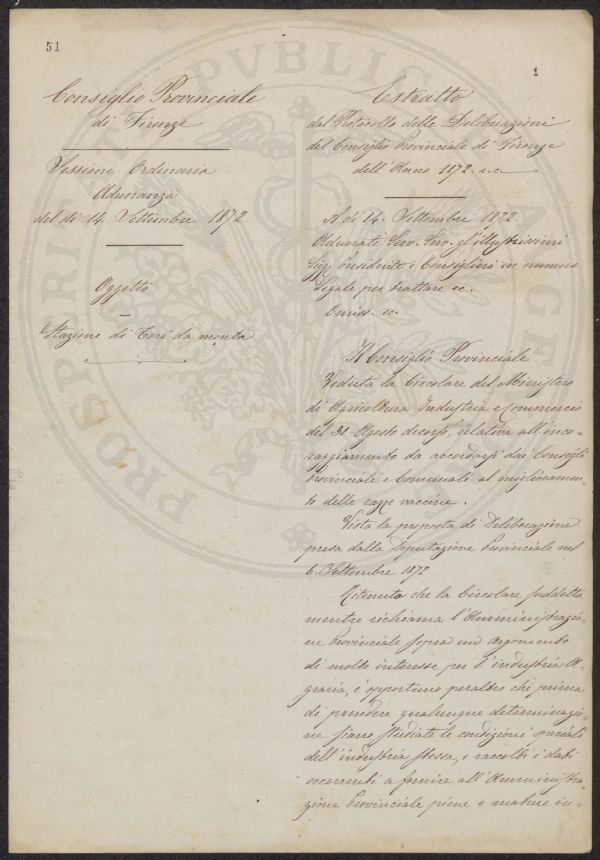 51
1
Consiglio Provinciale
di Firenze
Sessione Ordinaria
Adunanza
del di 14. Settembre 1872
Oggetto
Stazione di Tori da monta
Estratto
dal Protocollo delle Deliberazioni
del Consiglio Provinciale di Firenze
dell'Anno 1872. a.c.
A di 14. Settembre 1872.
Adunati Serv. Serv. gl'illustrissimi
Sigg. Presidente e Consiglieri in numero
Legale per trattare ec.
Omiss. ec.
Il Consiglio Provinciale
Veduta la Circolare del Ministero
di Agricoltura Industria e Commercio
del 31 Agosto decorso, relativa all'inco-
raggiamento da accordarsi dai Consigli
Provinciali e Comunali al migliocamen-
to delle razze vaccine.
Vista la proposta di Deliberazione
presa dalla Deputazione Provinciale nel
6 Settembre 1872
Ritenuto che la Circolare suddetta
mentre richiama l'Amministrazio-
ne Provinciale sopra un argomento
di molto interesse per l'industria A-
graria, è opportuno peraltro che prima
di prendere qualunque determinazio-
ne siano studiate le condizioni speciali
dell'industria stessa, e raccolti i dati
occorrenti a fornire all'Amministra-
zione Provinciale piene e mature in-
PROSPERITATI PVBLICAE AVGENDAE